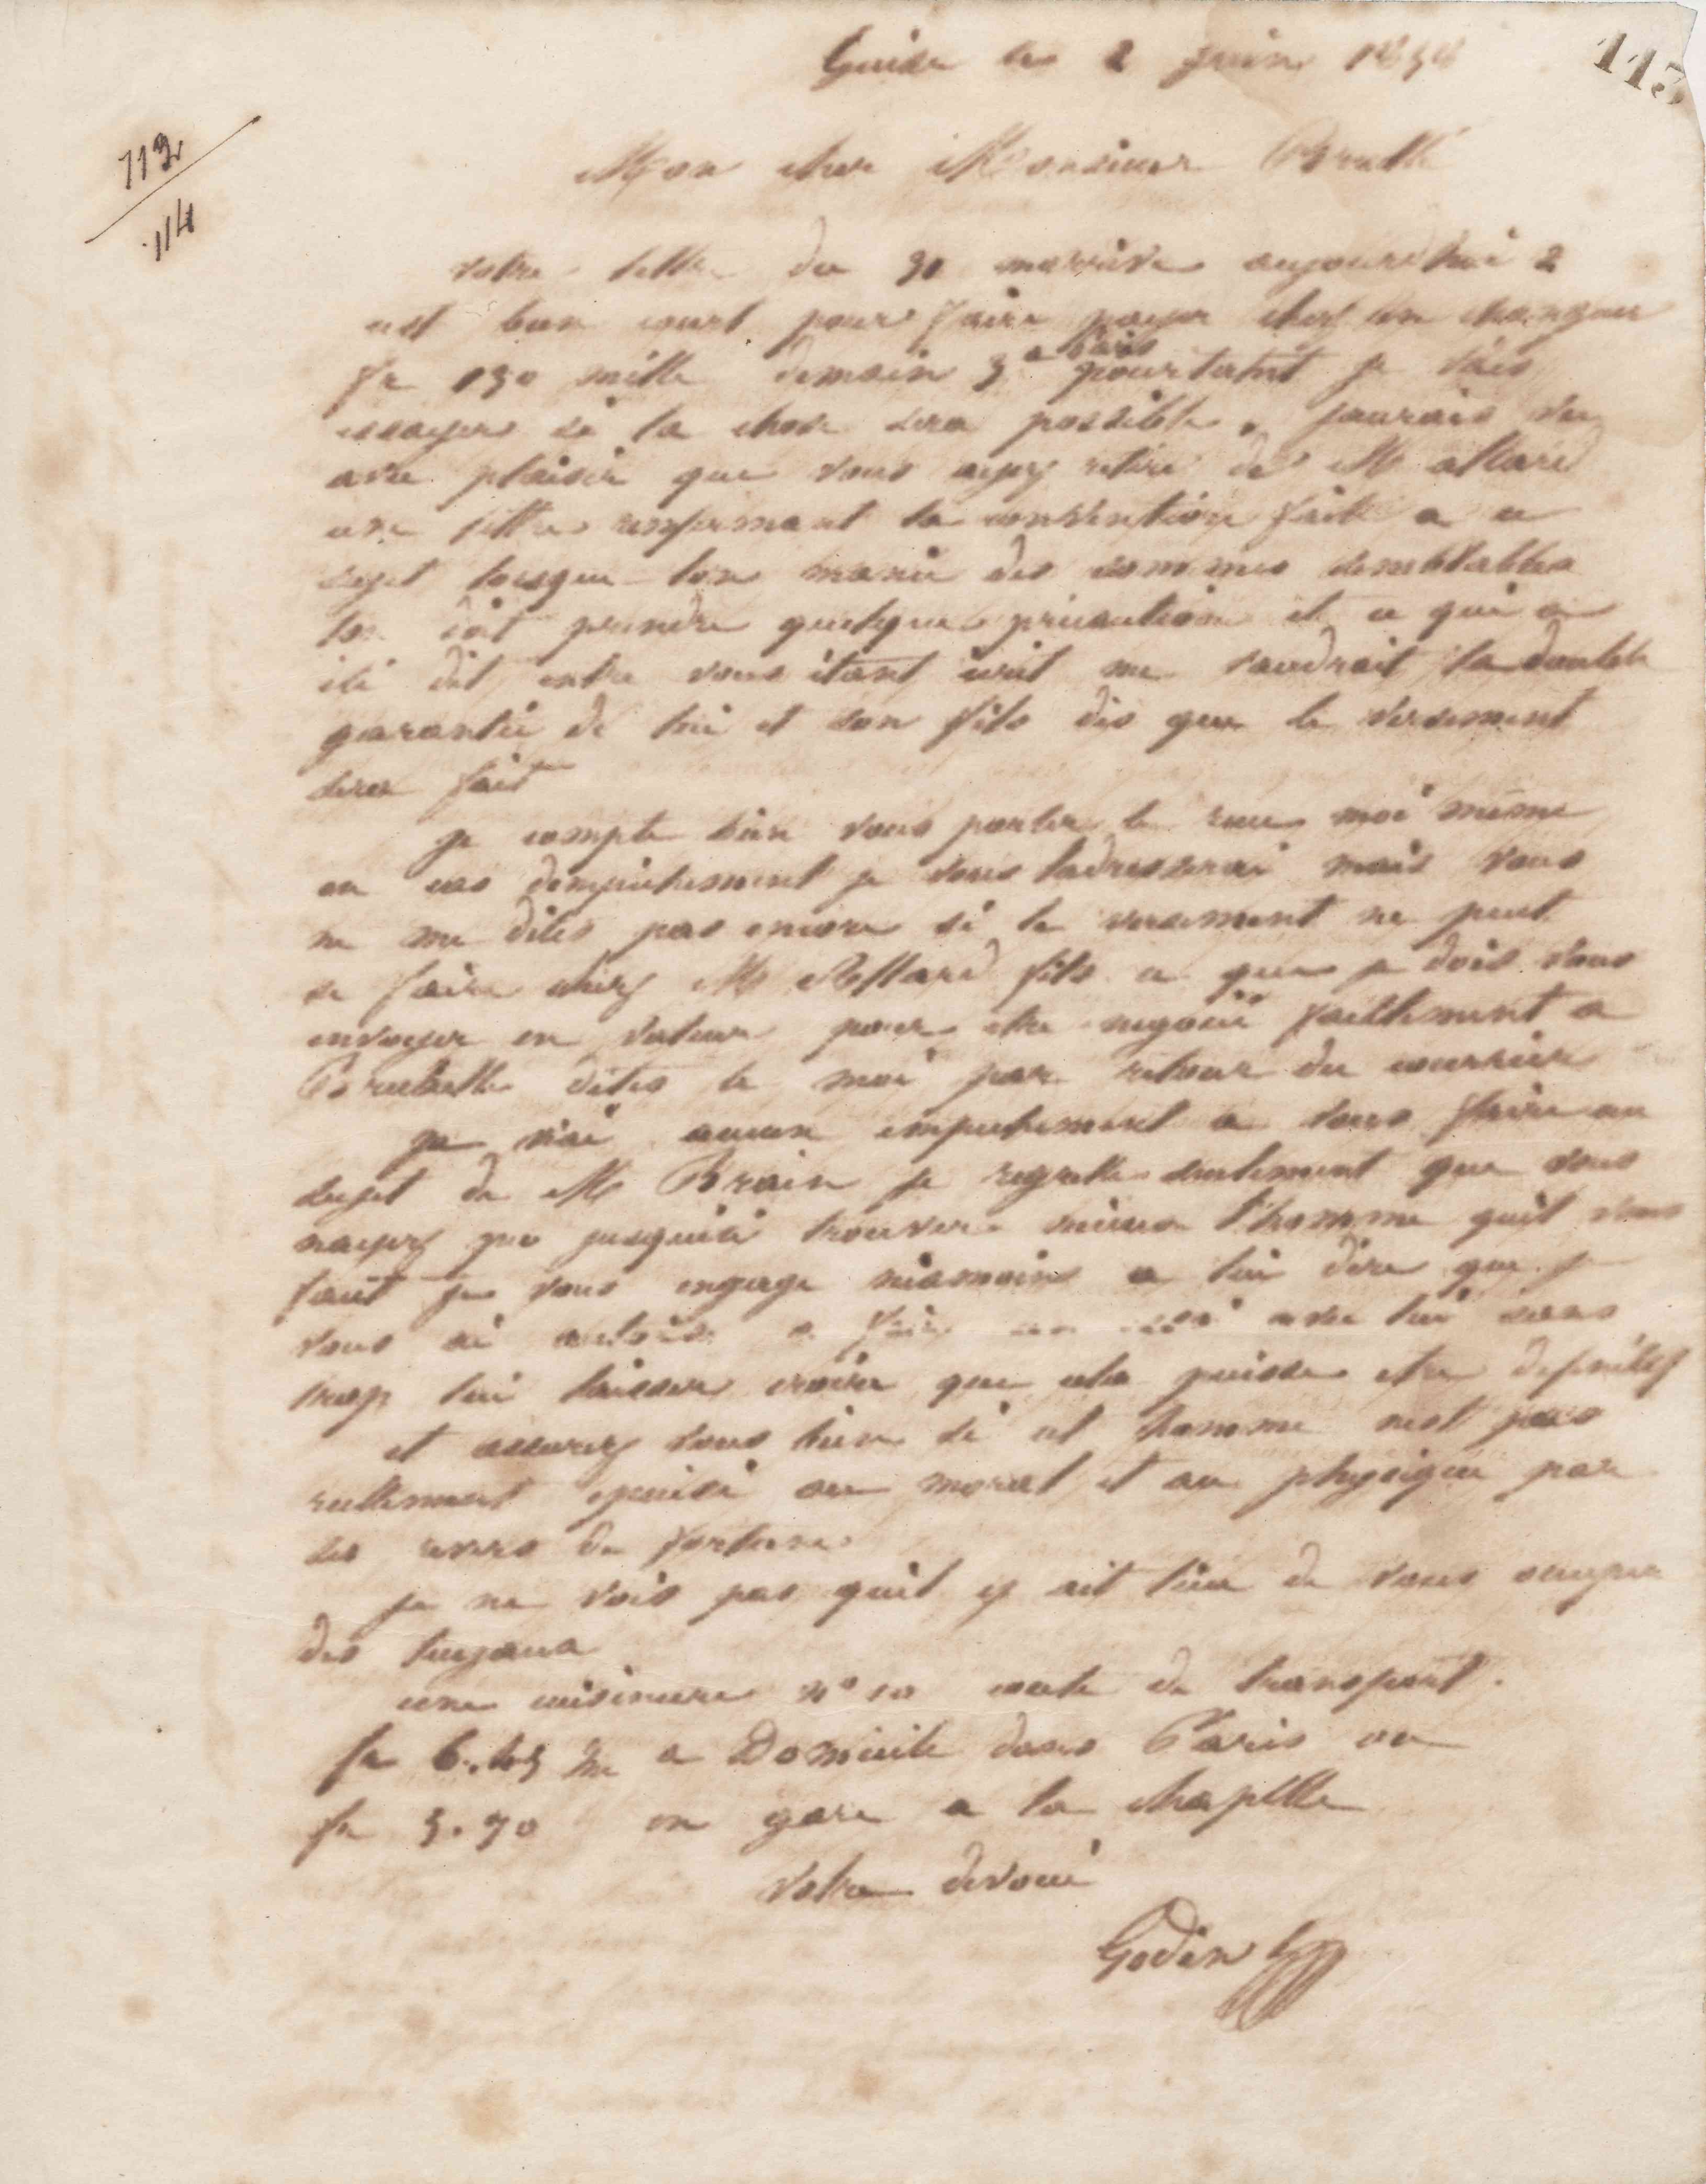 113
Guise le 2 juin 1858
112
114
Mon cher Monsieur Brullé
votre lettre du 31 marrive aujourdhui 2
cest bien court pour faire payer chez un changeur
fr 150 mille demain 3 a Paris pourtant je vais
essayer si la chose sera possible. jaurais vu
avec plaisir que vous ayez retiré de M allard
une lettre renfermant la convention faite a ce
sujet lorsque lon manie des sommes semblables
lon doit prendre quelques précaution et ce qui a
été dit entre vous étant écrit me vaudrait la double
garantie de lui et son fils dès que le versement
sera fait
je compte bien vous porter le reçu moi même
en cas dempéchement je vous ladresserai mais vous
ne me dites pas encore si le versement ne peut
se faire chez M Allard fils ce que je dois vous
envoyer en valeur pour etre négocié facilement a
Bruxelle dites le moi par retour du courrier
je n'ai aucun empechement a vous faire au
sujet de M Brain je regrette seulement que vous
nayez pu jusquici trouver mieux l'homme quil vous
faut je vous engage néamoins a lui dire que je
vous ai autorisé a faire un essai avec lui sans
trop lui laisser croire que cela puisse etre definitif
et assurez vous bien si cet homme nest pas
reellement epuisé au moral et au physique par
ses revers de fortune
je ne vois pas quil y ait lieu de vous occuper
des tuyaux
une cuisinière n° 10 coute de transport.
fr 6.45 a Domicile dans Paris ou
fr 5.70 en gare a la chaplle
votre dévoué
Godin